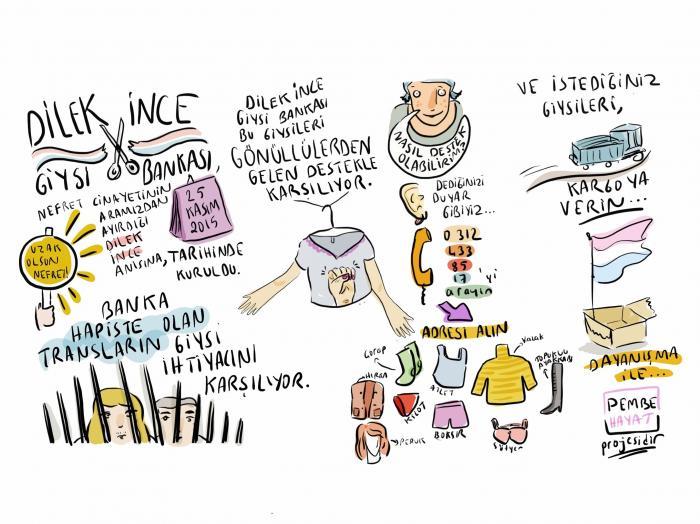 DİLEK İNCE
GİYSİ BANKASI,
NEFRET CİNAYETİNİN
ARAMIZDAN
AYIRDIĞI
DİLEK
İNCE
ANISINA, TARİHİNDE
KURULDU.
25
KASIM
2015
UZAK
OLSUN
NEFRET!
BANKA
HAPİSTE OLAN
TRANSLARIN GİYSİ
İHTİYACINI
KARŞILIYOR.
DİLEK İNCE
GİYSİ BANKASI
BU GİYSİLERİ
GÖNÜLLÜLERDEN
GELEN DESTEKLE
KARŞILIYOR.
NASIL DESTEK
OLABİLİRİM?
DEDİĞİNİZİ
DUYAR
GİBİYİZ...
0312
433
85
17'yi
arayın
ADRESİ ALIN
Çorap
HIRKA
KİLOT
ATLET
BOKSIR
Kazak
TOPUKLU
AYAKKABI
PERUK
Sütyen
VE İSTEDİĞİNİZ
GİYSİLERİ,
KARGOYA
VERİN...
DAYANIŞMA
İLE...
PEMBE
HAYAT
projesidir